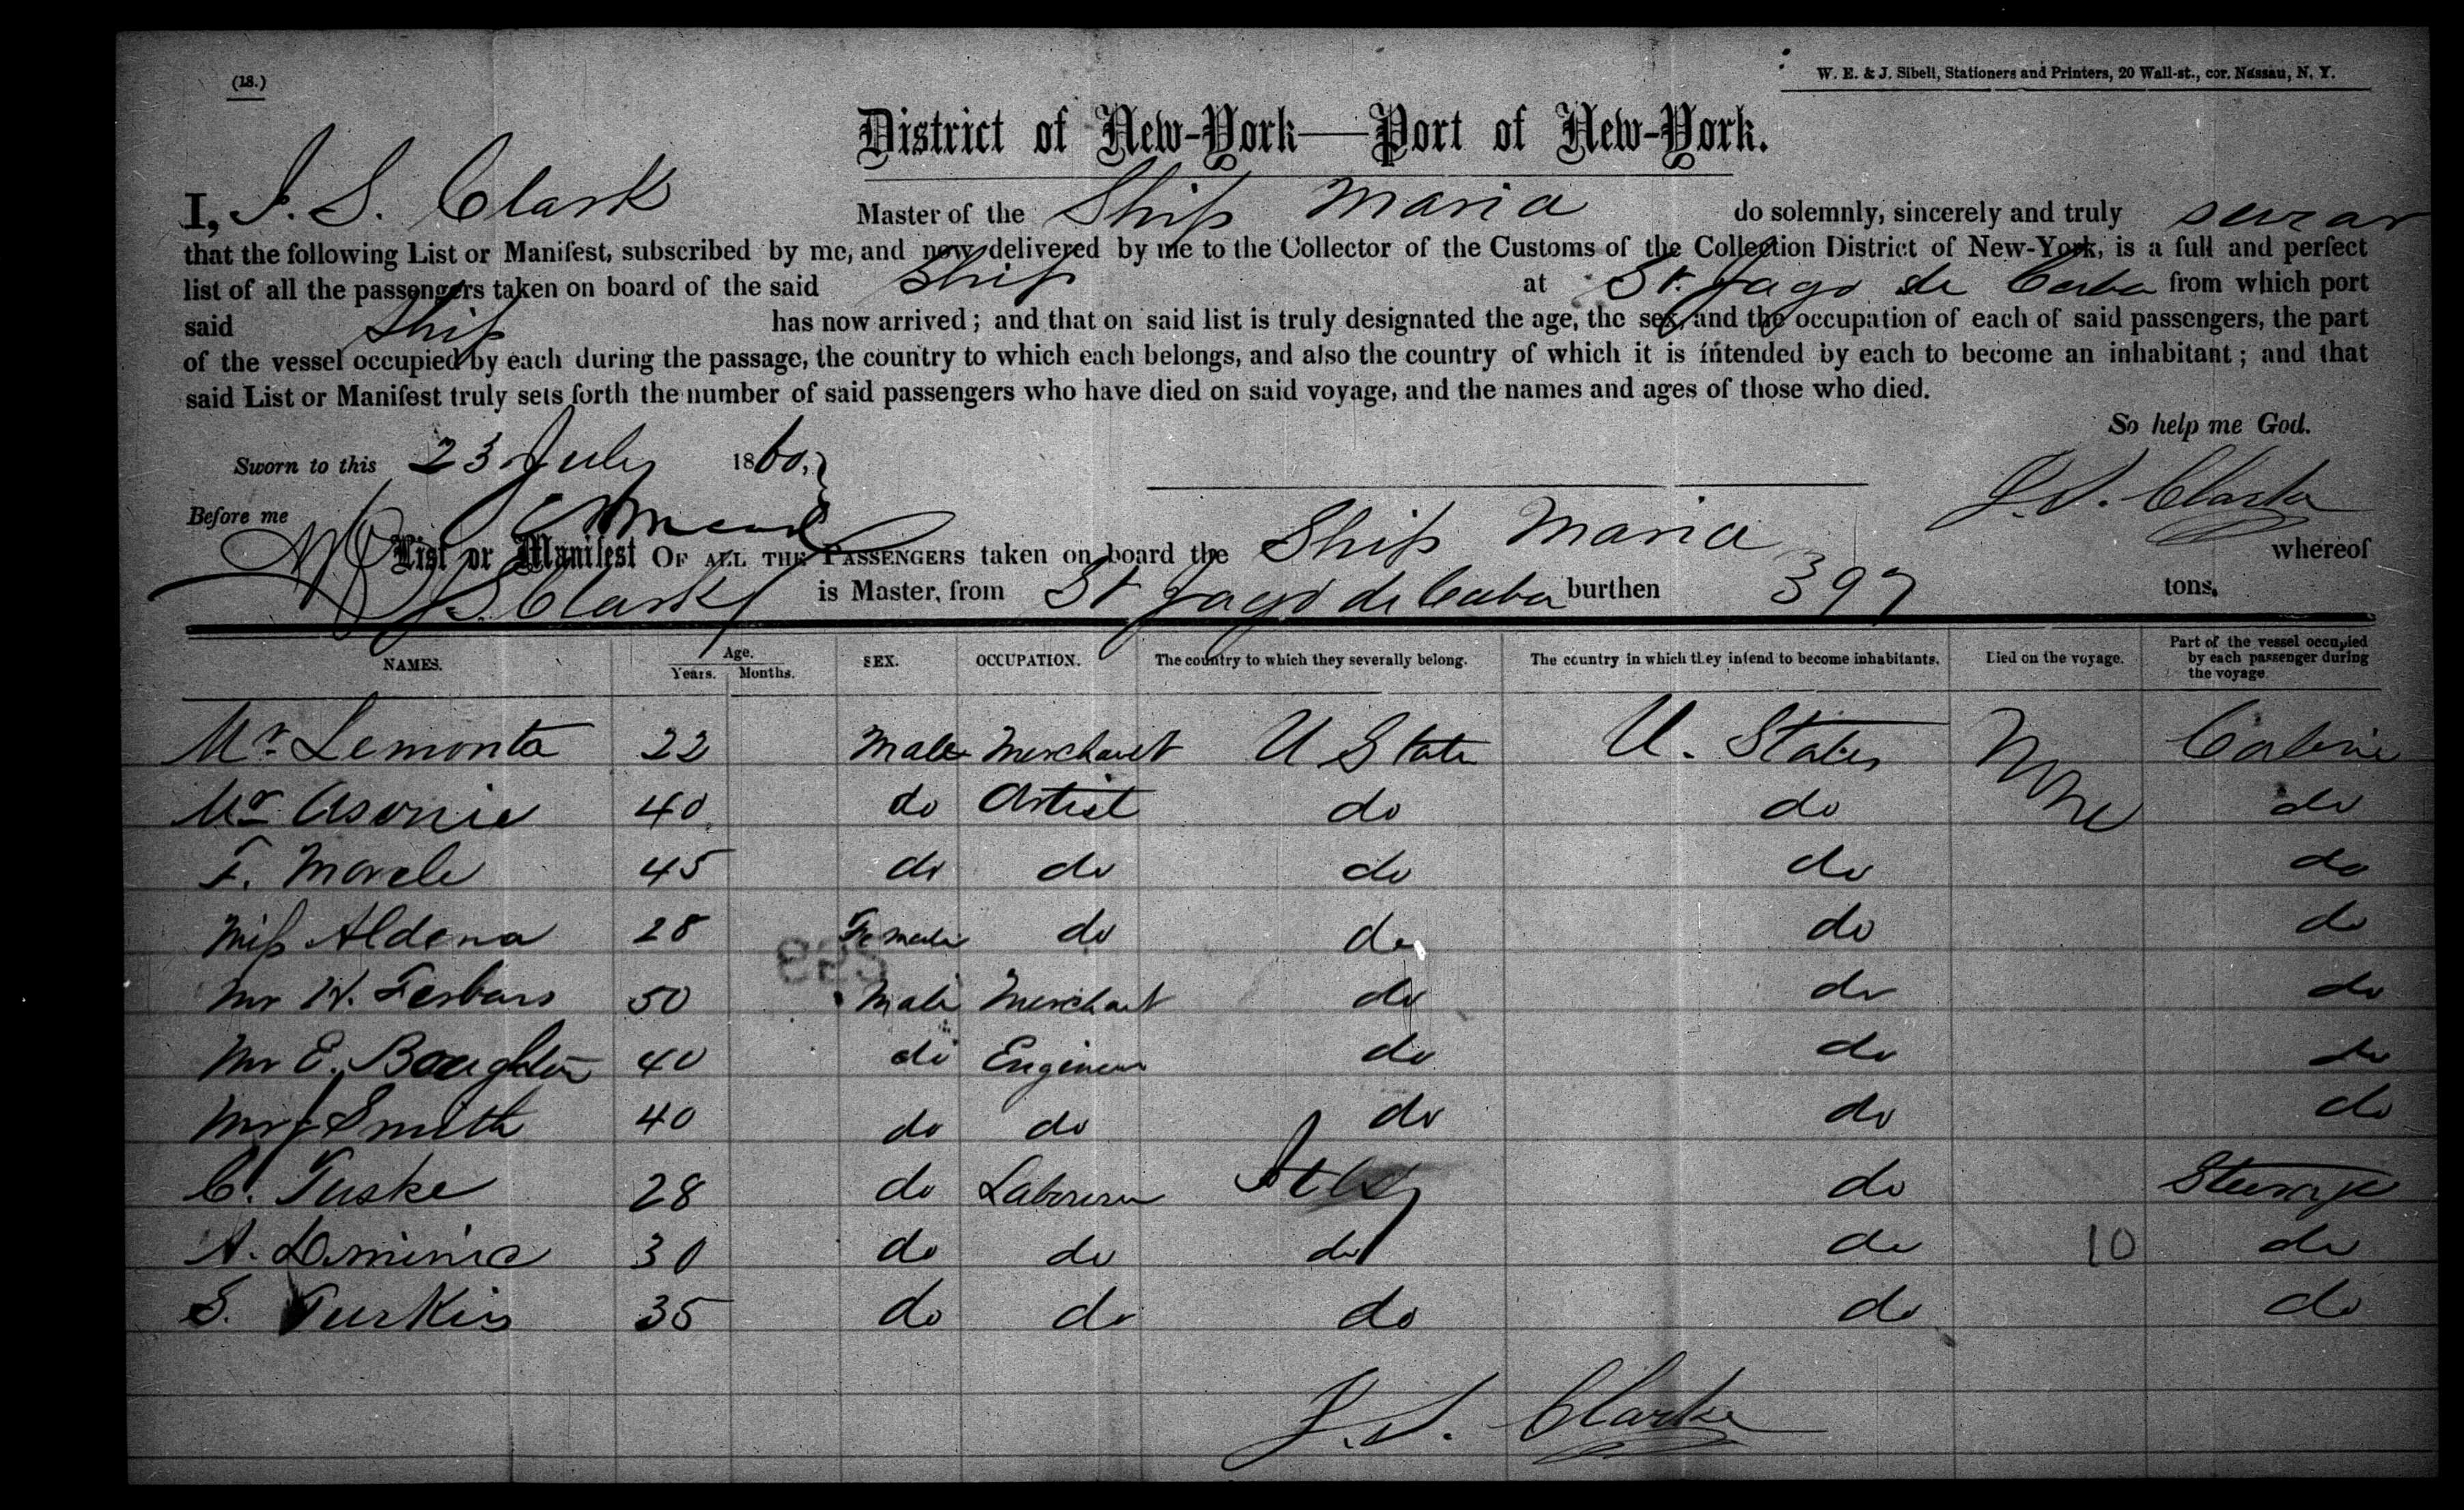 (18.)
W. E. & J. Sibell, Stationers and Printers, 20 Wall-st., cor. Nassau, N. Y.
District of New-York—Port of New-York.
I, J. S. Clark Master of the Ship Maria do solemnly, sincerely and truly swear
that the following List or Manifest, subscribed by me, and now delivered by me to the Collector of the Customs of the Collection District of New-York, is a full and perfect
list of all the passengers taken on board of the said Ship at St. Jago de Cuba from which port
said Ship has now arrived; and that on said list is truly designated the age, the sex, and the occupation of each of said passengers, the part
of the vessel occupied by each during the passage, the country to which each belongs, and also the country of which it is intended by each to become an inhabitant; and that
said List or Manifest truly sets forth the number of said passengers who have died on said voyage, and the names and ages of those who died.
So help me God.
Sworn to this 23 July 1860,
J. S. Clarke
Before me
List or Manifest OF ALL THE PASSENGERS taken on board the Ship Maria whereof
J. S. Clark is Master, from St Jago de Cuba burthen 397 tons.
NAMES. Age. Years. Months. SEX. OCCUPATION. The country to which they severally belong. The country in which they intend to become inhabitants. Died on the voyage. Part of the vessel occupied by each passenger during the voyage
Mr Lemonta 22 Male Merchant U State U. States None Cabin
Mr Asonie 40 do Artist do do do
F. Morele 45 do do do do do
Miss Aldena 28 Female do do do do
Mr H. Ferbars 50 Male Merchant do do do
Mr E. Boughton 40 do Engineer do do do
Mr J Smith 40 do do do do do
C. Tuske 28 do Laborer Italy do Steerage
A. Dominic 30 do do do do 10 do
S. Turkis 35 do do do do do
J. S. Clarke